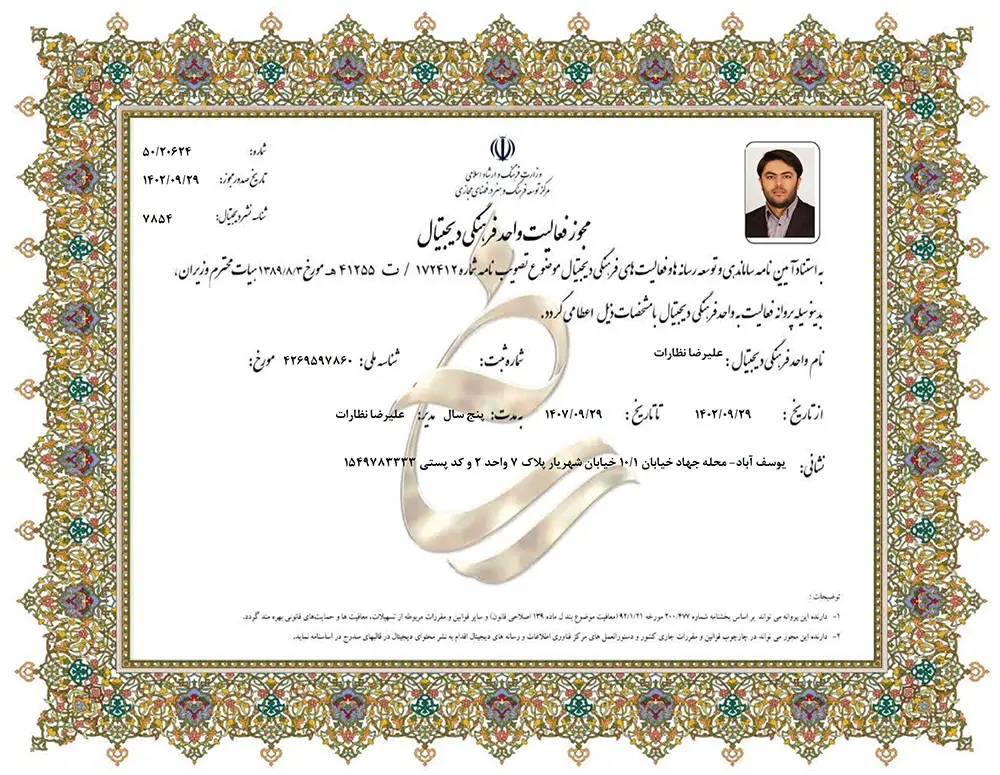 شماره: ۵۰/۲۰۶۲۴
تاریخ صدور مجوز: ۱۴۰۲/۰۹/۲۹
شناسه نشر دیجیتال: ۷۸۵۴
وزارت فرهنگ و ارشاد اسلامی
مرکز توسعه فرهنگ و هنر در فضای مجازی
مجوز فعالیت واحد فرهنگی دیجیتال
به استناد آیین نامه ساماندهی و توسعه رسانه ها و فعالیت های فرهنگی دیجیتال موضوع تصویب نامه شماره ۱۷۲۴۱۲ / ت ۴۱۲۵۵ هـ مورخ ۱۳۸۹/۸/۳ هیات محترم وزیران،
بدینوسیله پروانه فعالیت به واحد فرهنگی دیجیتال با مشخصات ذیل اعطا می گردد.
نام واحد فرهنگی دیجیتال : علیرضا نظارات شماره ثبت: شناسه ملی: ۴۲۶۹۵۹۷۸۶۰ مورخ:
از تاریخ : ۱۴۰۲/۰۹/۲۹ تا تاریخ : ۱۴۰۷/۰۹/۲۹ به مدت: پنج سال مدیر: علیرضا نظارات
نشانی: یوسف آباد- محله جهاد خیابان ۱۰/۱ خیابان شهریار پلاک ۷ واحد ۲ و کد پستی ۱۵۴۹۷۸۳۳۳۳
توضیحات :
۱- دارنده این پروانه می تواند بر اساس بخشنامه شماره ۲۰۰/۴۷۷ مورخه ۹۲/۱/۲۱(معافیت موضوع بند ل ماده ۱۳۹ اصلاحی قانون) و سایر قوانین و مقررات مربوطه از تسهیلات، معافیت ها و حمایت‌های قانونی بهره مند گردد.
۲- دارنده این مجوز می تواند در چارچوب قوانین و مقررات جاری کشور و دستورالعمل های مرکز فناوری اطلاعات و رسانه های دیجیتال اقدام به نشر محتوای دیجیتال در قالبهای مندرج در اساسنامه نماید.